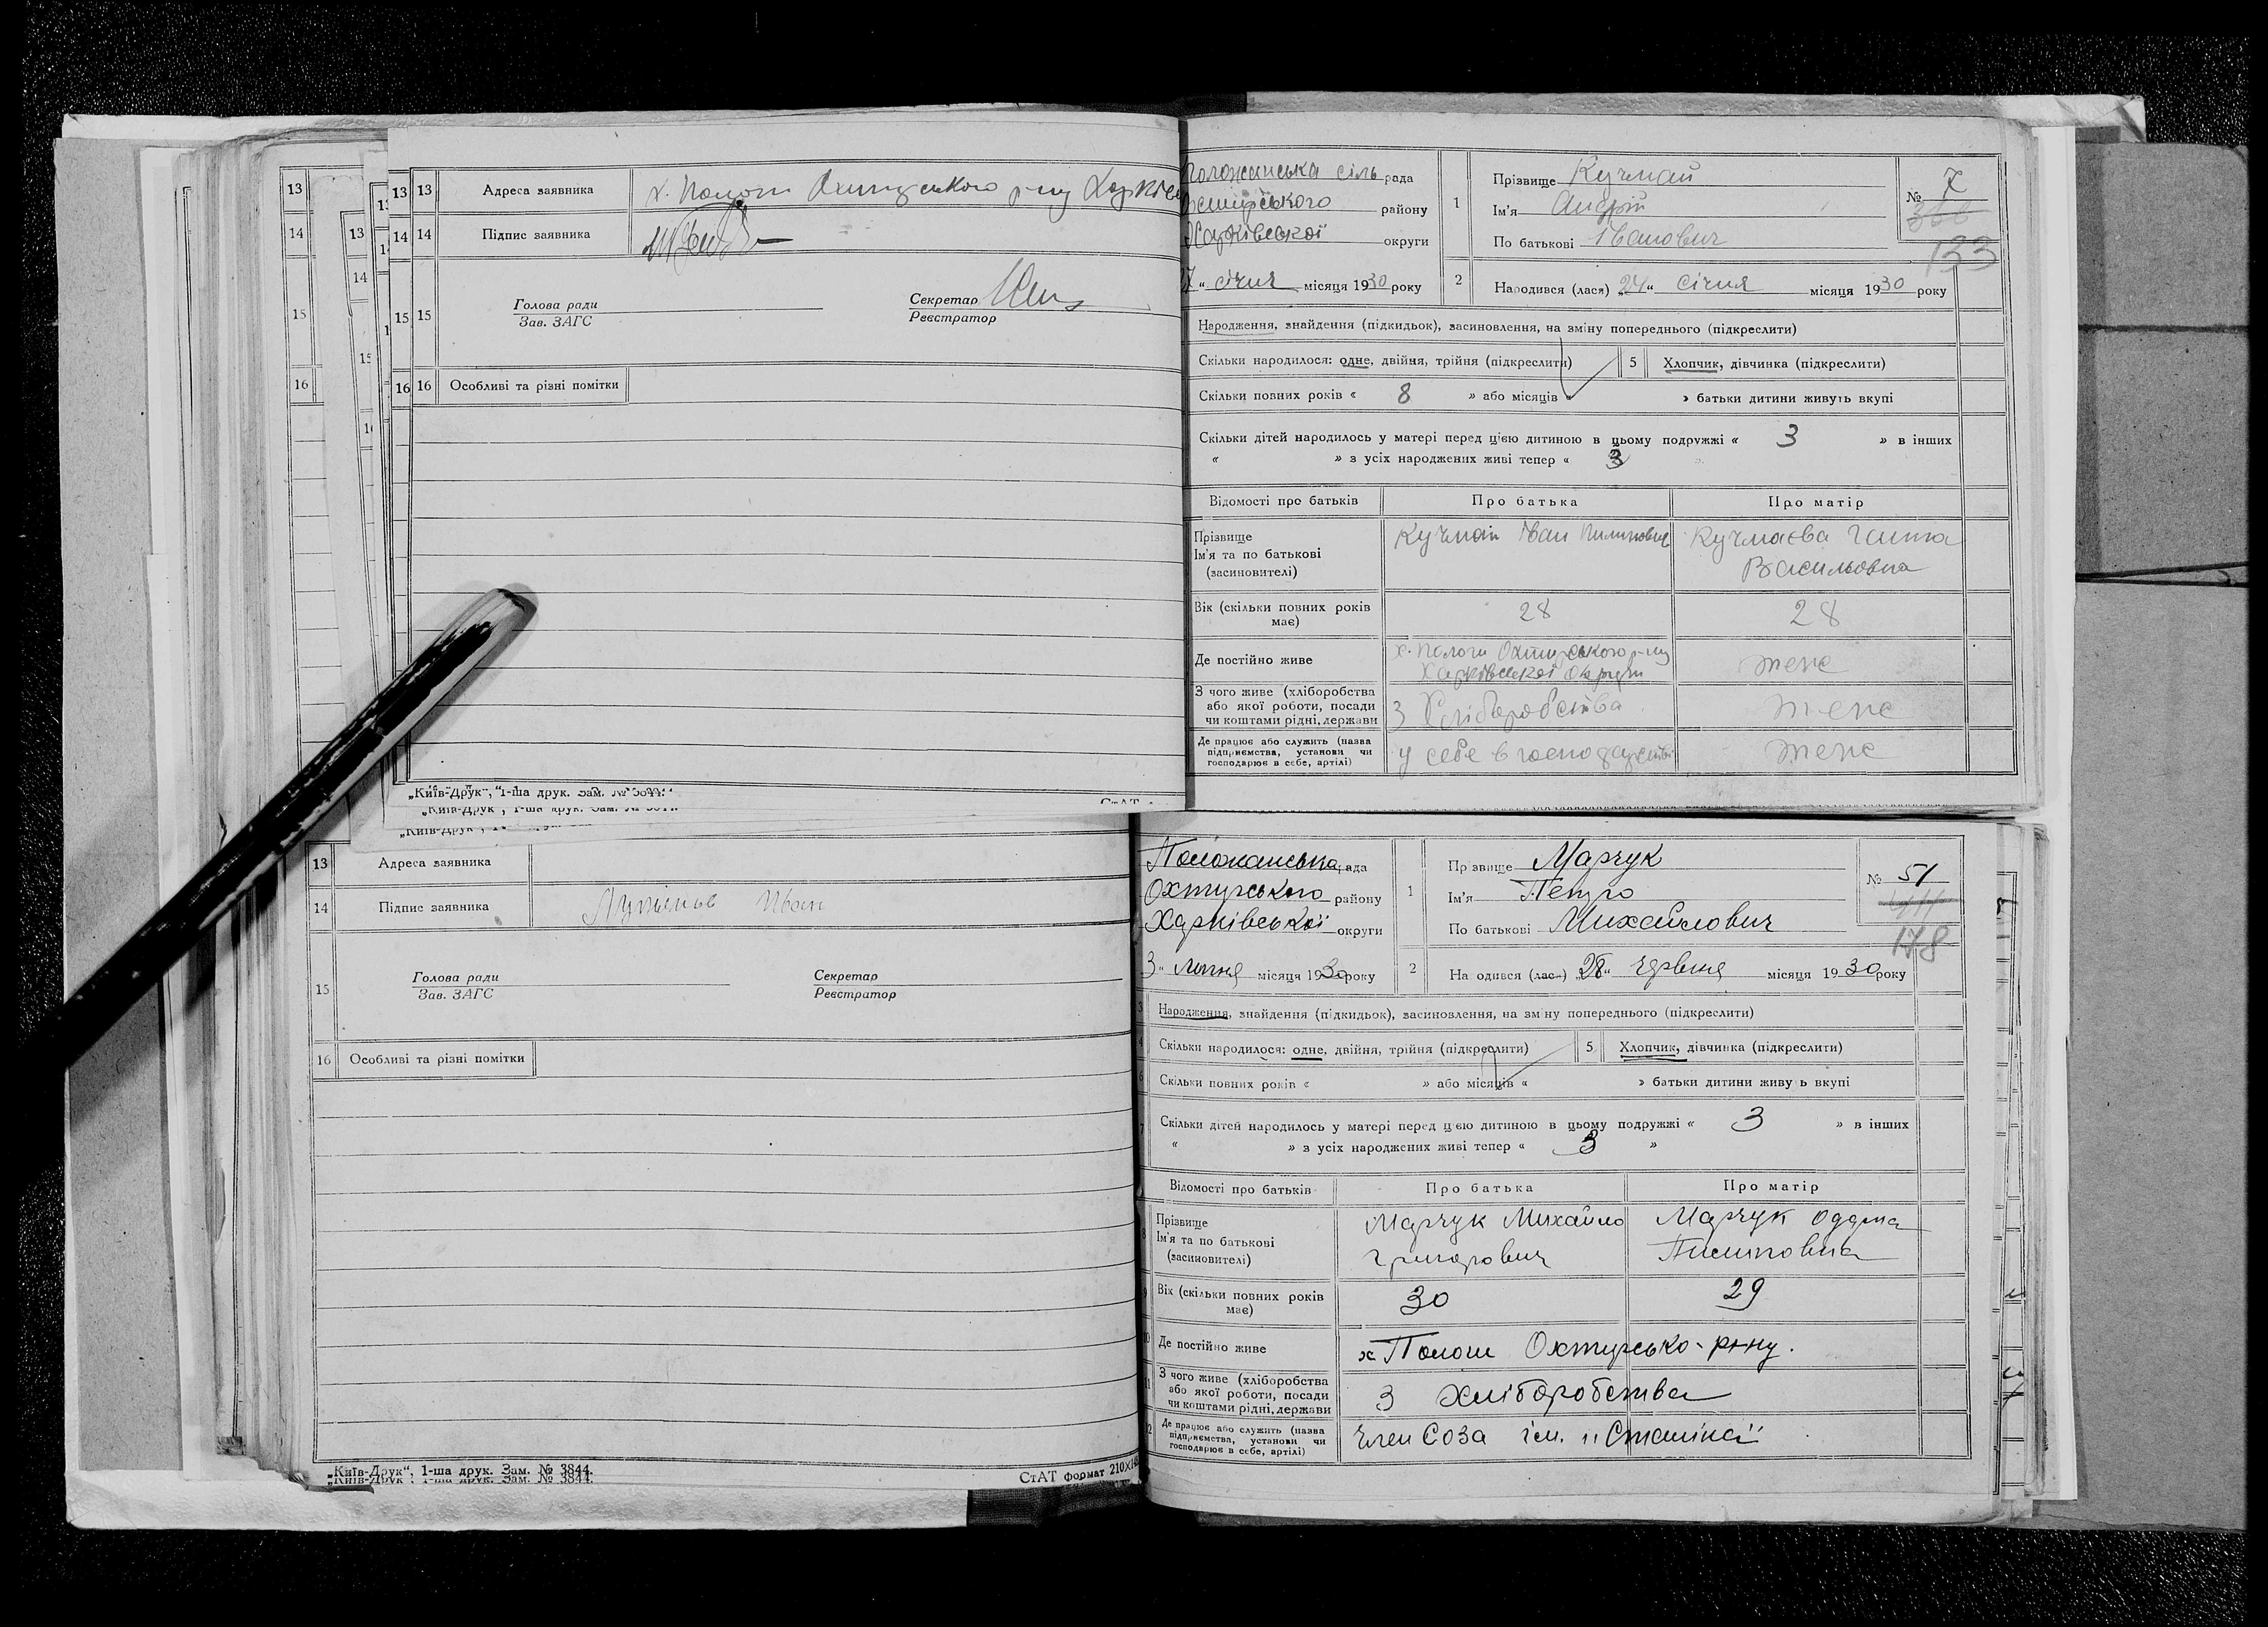 13 Адреса заявника х. Пологи Охтирського р-ну Харків
14 Підпис заявника
15 Голова ради Секретар
Зав. ЗАГС Реєстратор
16 Особливі та різні помітки
„Київ-Друк“, 1-ша друк. Зам. № 3844.
Положанська сіль рада
Охтирського району
Харківської округи
27 „ січня місяця 1930 року
1 Прізвище Кучмай
Ім'я Андрій
По батькові Іванович
№ 7
366
133
2 Народився (лася) „24“ січня місяця 1930 року
Народження, знайдення (підкидьок), засиновлення, на зміну попереднього (підкреслити)
Скільки народилося: одне, двійня, трійня (підкреслити) 5 Хлопчик, дівчинка (підкреслити)
Скільки повних років « 8 » або місяців « » батьки дитини живуть вкупі
Скільки дітей народилось у матері перед цією дитиною в цьому подружжі « 3 » в інших
« » з усіх народжених живі тепер « 3 »
Відомості про батьків Про батька Про матір
Прізвище
Ім'я та по батькові
(засиновителі)
Кучмай Іван Пилипович
Кучмаєва Ганна
Васильовна
Вік (скільки повних років
має) 28 28
Де постійно живе х. Пологи Охтирського р-ну
Харківської Округи теж
З чого живе (хліборобства
або якої роботи, посади
чи коштами рідні, держави
З Хліборобства теж
Де працює або служить (назва
підприємства, установи чи
господарює в себе, артілі)
у себе в господарстві теж
13 Адреса заявника
14 Підпис заявника Іван
15 Голова ради Секретар
Зав. ЗАГС Реєстратор
16 Особливі та різні помітки
„Київ-Друк“, 1-ша друк. Зам. № 3844.
СтАТ формат 210×148
Положанська рада
Охтирського району
Харківської округи
3 „ липня місяця 1930 року
1 Прізвище Марчук
Ім'я Петро
По батькові Михайлович
№ 51
178
2 Народився (лас-) „28“ червня місяця 1930 року
3 Народження, знайдення (підкидьок), засиновлення, на зміну попереднього (підкреслити)
4 Скільки народилося: одне, двійня, трійня (підкреслити) 5 Хлопчик, дівчинка (підкреслити)
6 Скільки повних років « » або місяців « » батьки дитини живуть вкупі
7 Скільки дітей народилось у матері перед цією дитиною в цьому подружжі « 3 » в інших
« » з усіх народжених живі тепер « 3 »
Відомості про батьків Про батька Про матір
8 Прізвище
Ім'я та по батькові
(засиновителі)
Марчук Михайло
Григорович
Марчук Оддрна
Пилиповна
9 Вік (скільки повних років
має) 30 29
10 Де постійно живе х Пологи Охтирсько- р-ну.
11 З чого живе (хліборобства
або якої роботи, посади
чи коштами рідні, держави
З хліборобства
12 Де працює або служить (назва
підприємства, установи чи
господарює в себе, артілі)
Член Соза ім. „Сталіна"